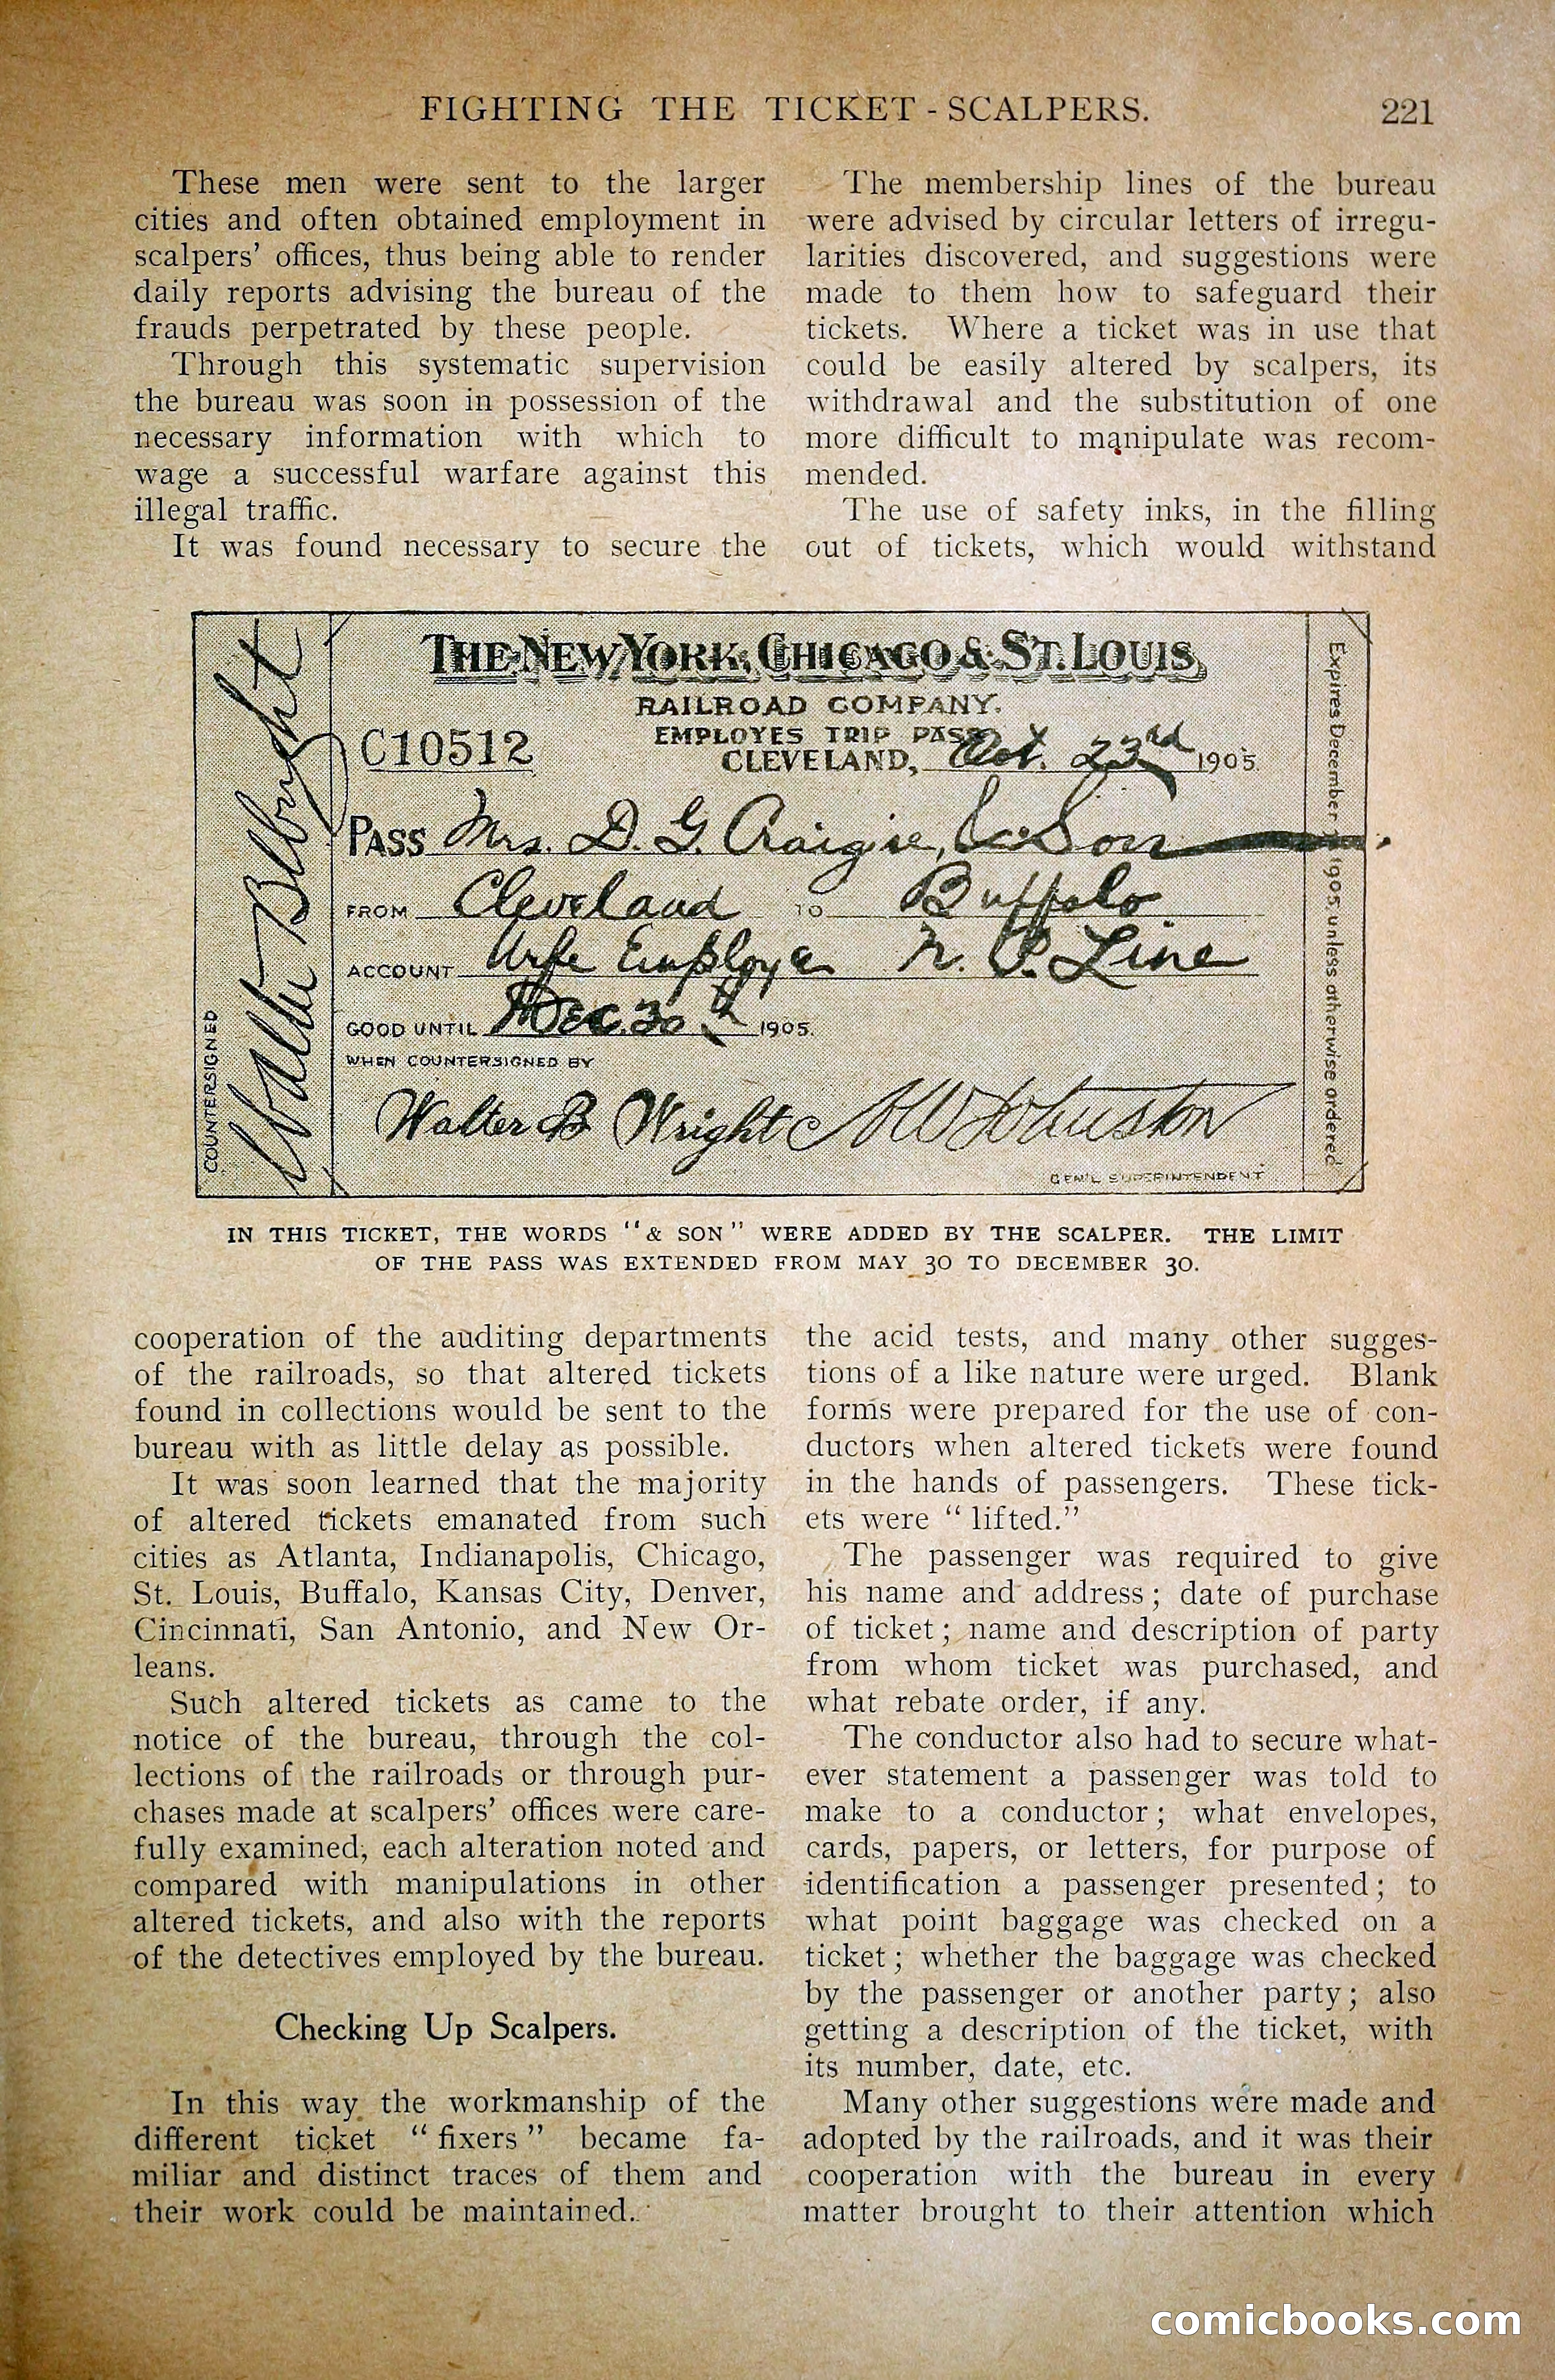 FIGHTING THE TICKET-SCALPERS. 221
These men were sent to the larger
cities and often obtained employment in
scalpers' offices, thus being able to render
daily reports advising the bureau of the
frauds perpetrated by these people.
Through this systematic supervision
the bureau was soon in possession of the
necessary information with which to
wage a successful warfare against this
illegal traffic.
It was found necessary to secure the
The membership lines of the bureau
were advised by circular letters of irregu-
larities discovered, and suggestions were
made to them how to safeguard their
tickets. Where a ticket was in use that
could be easily altered by scalpers, its
withdrawal and the substitution of one
more difficult to manipulate was recom-
mended.
The use of safety inks, in the filling
out of tickets, which would withstand
THE NEW YORK, CHICAGO & ST. LOUIS
RAILROAD COMPANY.
EMPLOYES TRIP PASS
C10512
CLEVELAND, Oct. 23rd 1905.
PASS Mrs. D. G. Craigie, & Son
FROM Cleveland TO Buffalo
ACCOUNT Wife Employe N. P. Line
GOOD UNTIL Dec. 30th 1905.
WHEN COUNTERSIGNED BY
Walter B Wright
GEN'L SUPERINTENDENT
COUNTERSIGNED
Expires December 1905, unless otherwise ordered
IN THIS TICKET, THE WORDS "& SON" WERE ADDED BY THE SCALPER. THE LIMIT
OF THE PASS WAS EXTENDED FROM MAY 30 TO DECEMBER 30.
cooperation of the auditing departments
of the railroads, so that altered tickets
found in collections would be sent to the
bureau with as little delay as possible.
It was soon learned that the majority
of altered tickets emanated from such
cities as Atlanta, Indianapolis, Chicago,
St. Louis, Buffalo, Kansas City, Denver,
Cincinnati, San Antonio, and New Or-
leans.
Such altered tickets as came to the
notice of the bureau, through the col-
lections of the railroads or through pur-
chases made at scalpers' offices were care-
fully examined, each alteration noted and
compared with manipulations in other
altered tickets, and also with the reports
of the detectives employed by the bureau.
Checking Up Scalpers.
In this way the workmanship of the
different ticket "fixers" became fa-
miliar and distinct traces of them and
their work could be maintained.
the acid tests, and many other sugges-
tions of a like nature were urged. Blank
forms were prepared for the use of con-
ductors when altered tickets were found
in the hands of passengers. These tick-
ets were "lifted."
The passenger was required to give
his name and address; date of purchase
of ticket; name and description of party
from whom ticket was purchased, and
what rebate order, if any.
The conductor also had to secure what-
ever statement a passenger was told to
make to a conductor; what envelopes,
cards, papers, or letters, for purpose of
identification a passenger presented; to
what point baggage was checked on a
ticket; whether the baggage was checked
by the passenger or another party; also
getting a description of the ticket, with
its number, date, etc.
Many other suggestions were made and
adopted by the railroads, and it was their
cooperation with the bureau in every
matter brought to their attention which
comicbooks.com